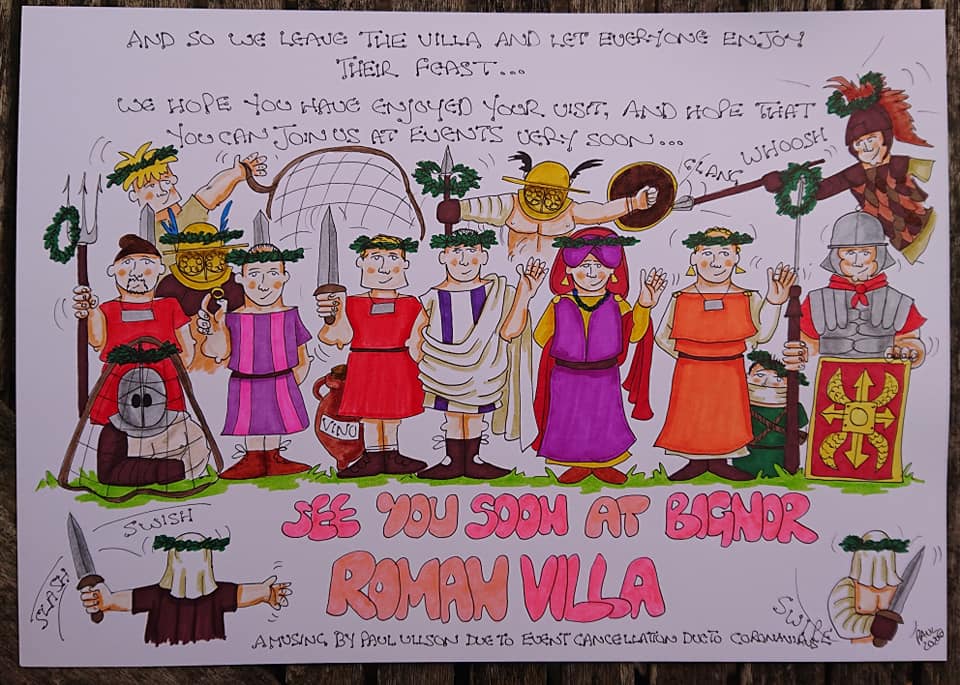 AND SO WE LEAVE THE VILLA AND LET EVERYONE ENJOY
THEIR FEAST...
WE HOPE YOU HAVE ENJOYED YOUR VISIT, AND HOPE THAT
YOU CAN JOIN US AT EVENTS VERY SOON...
CLANG
WHOOSH
VINO
SEE YOU SOON AT BIGNOR
ROMAN VILLA
SWISH
SLASH
SWIPE
A MUSING BY PAUL ULLSON DUE TO EVENT CANCELLATION DUE TO CORONAVIRUS
PAUL
2020